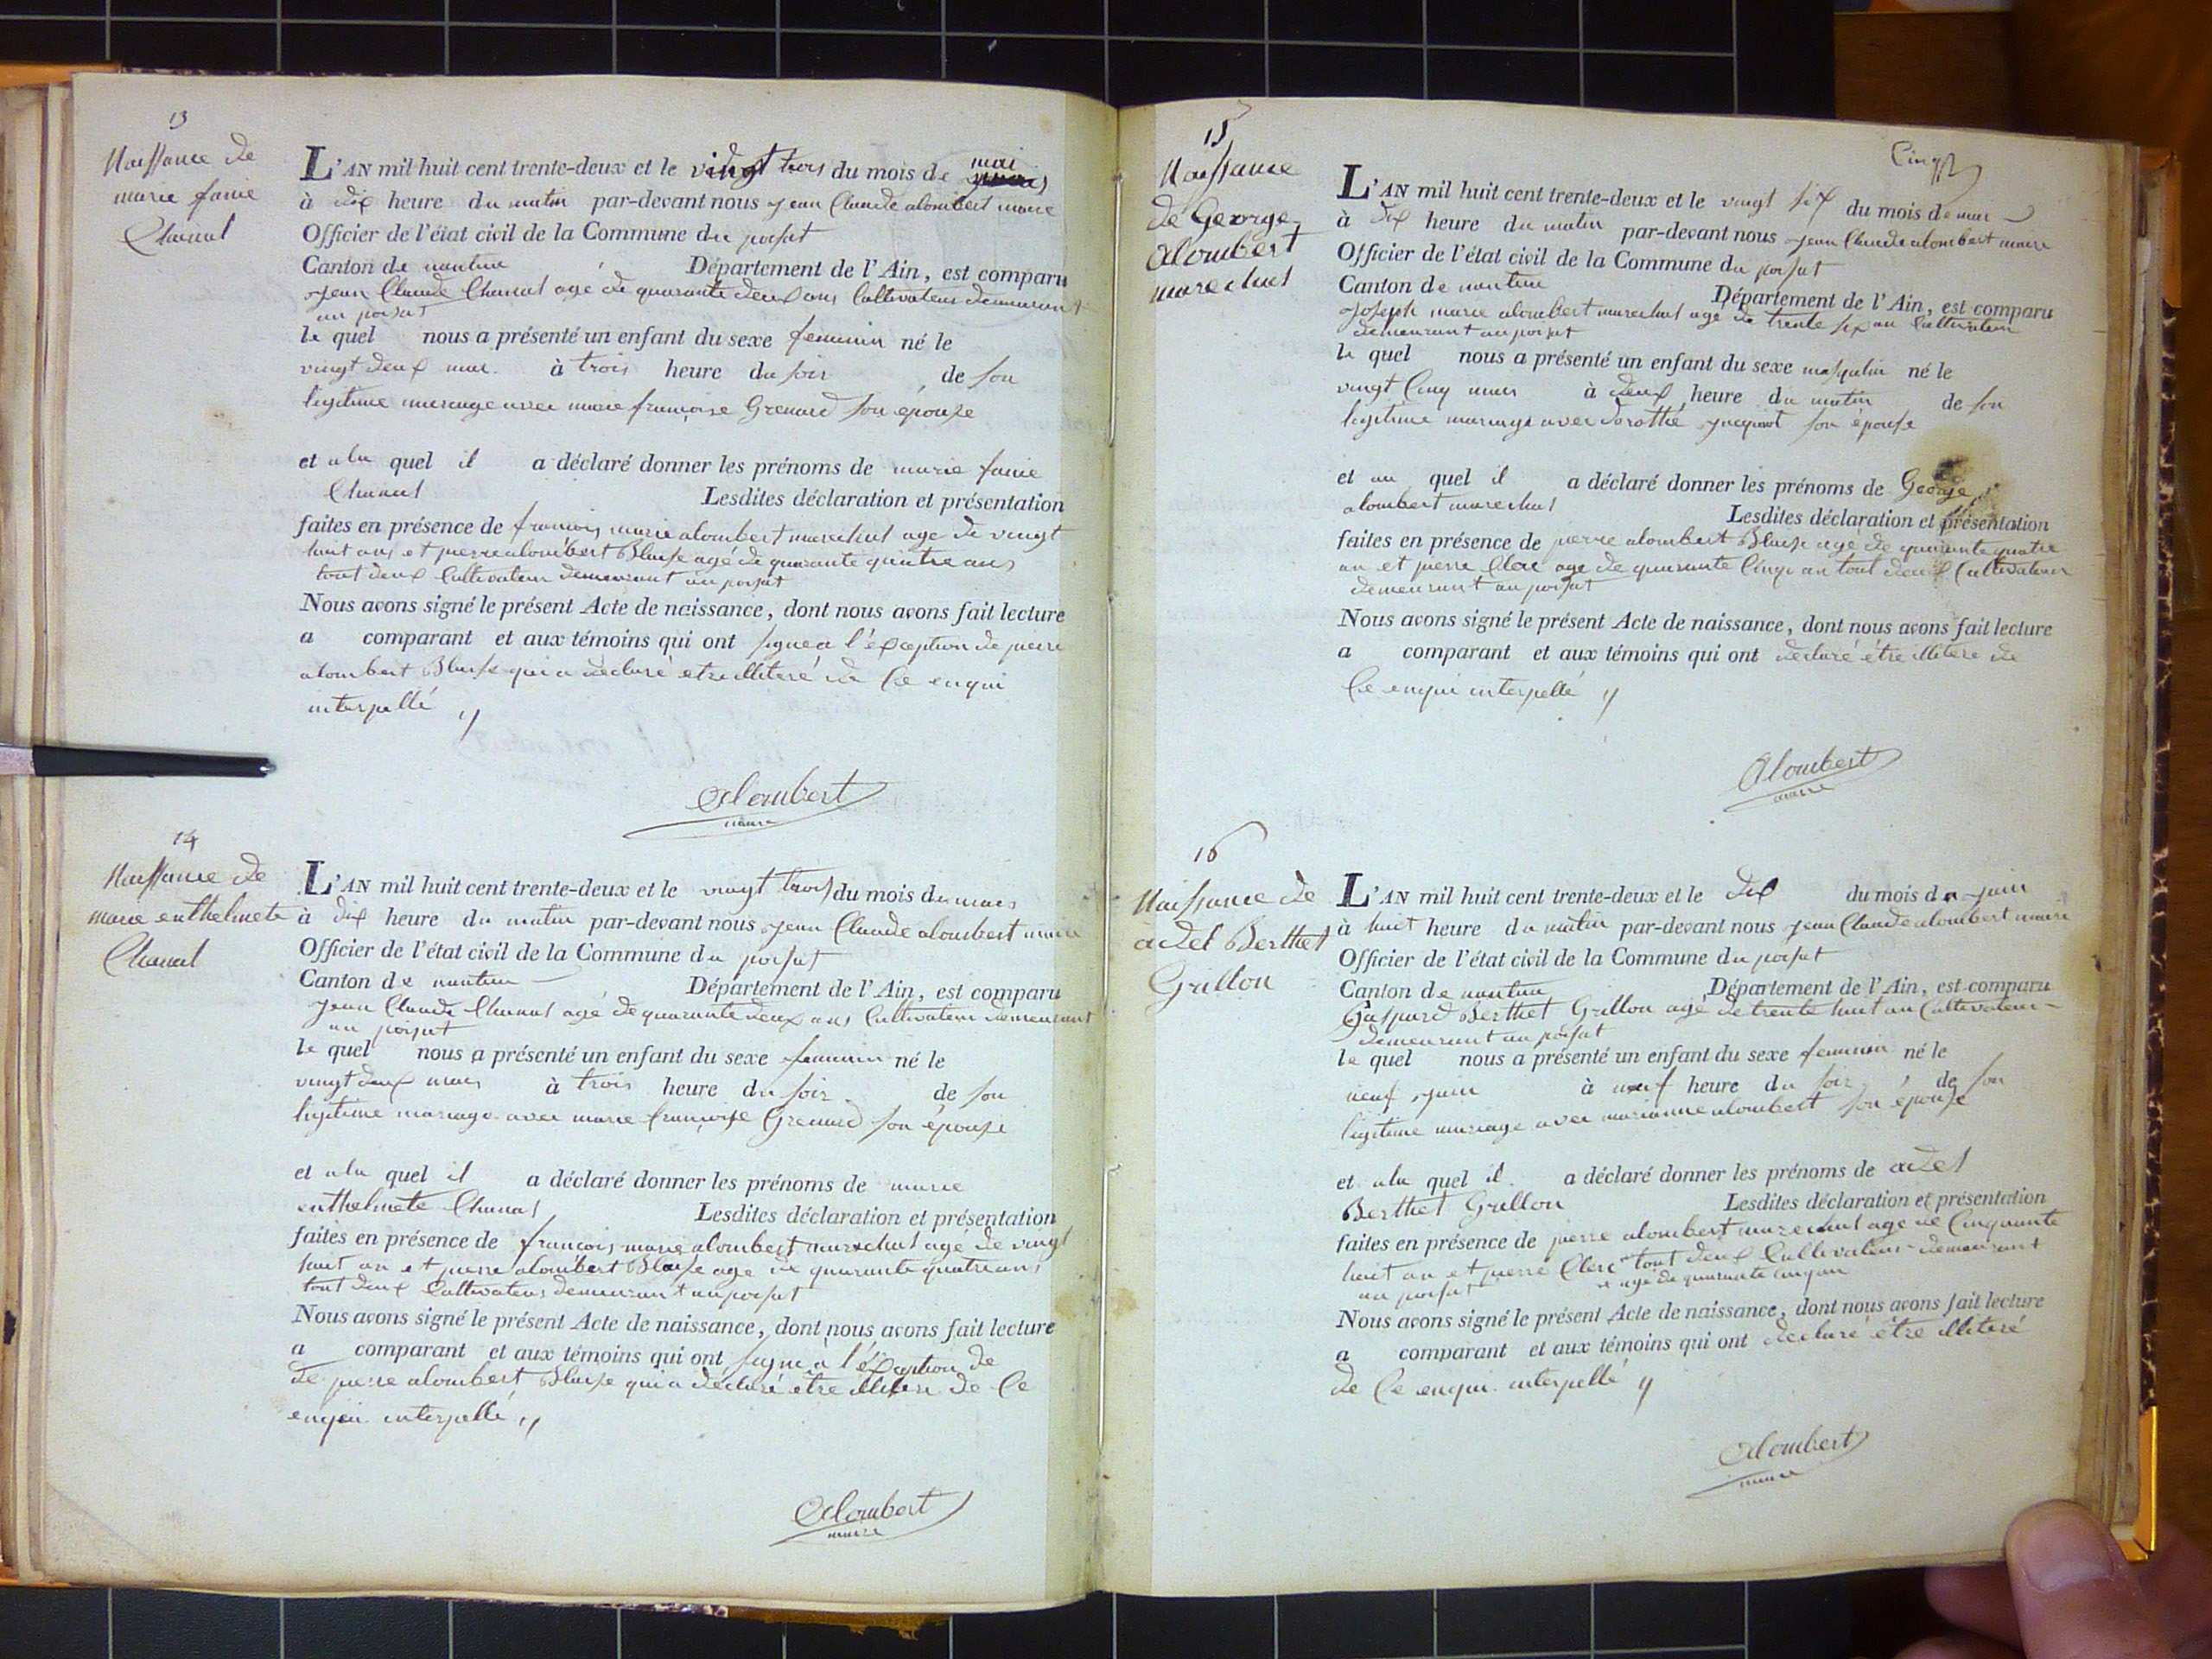 13
Naissance de
marie fanie
Chanal
L'AN mil huit cent trente-deux et le vingt trois du mois de mai
à dix heure du matin par-devant nous jean Claude alombert maire
Officier de l'état civil de la Commune du poisat
Canton de nantua Département de l'Ain, est comparu
jean Claude Chanal agé de quarante deux ans Cultivateur demeurant
au poisat
le quel nous a présenté un enfant du sexe feminin né le
vingt deux mai à trois heure du soir de son
legitime mariage avec marie françoise Grenard son épouse
et a la quel il a déclaré donner les prénoms de marie fanie
Chanal Lesdites déclaration et présentation
faites en présence de francois marie alombert marechal age de vingt
huit ans et pierre alombert Blaise agé de quarante quatre ans
tout deux Cultivateur demeurant au poisat
Nous avons signé le présent Acte de naissance, dont nous avons fait lecture
a comparant et aux témoins qui ont signe a l'exception de pierre
alombert Blaise qui a déclaré etre illiteré de Ce enqui
interpellé
Alombert
maire
14
Naissance de
marie enthelmete
Chanal
L'AN mil huit cent trente-deux et le vingt trois du mois du mais
à dix heure du matin par-devant nous jean Claude alombert maire
Officier de l'état civil de la Commune du poisat
Canton de nantua Département de l'Ain, est comparu
jean Claude Chanal agé de quarante deux ans Cultivateur demeurant
au poisat
le quel nous a présenté un enfant du sexe feminin né le
vingt deux mais à trois heure du soir de son
legitime mariage avec marie françoise Grenard son épouse
et a la quel il a déclaré donner les prénoms de marie
enthelmete Chanal Lesdites déclaration et présentation
faites en présence de francois marie alombert marechal agé de vingt
huit an et pierre alombert Blaise age de quarante quatre ans
tout deux Cultivateur demeurant au poisat
Nous avons signé le présent Acte de naissance, dont nous avons fait lecture
a comparant et aux témoins qui ont signe a l'exception de
de pierre alombert Blaise qui a déclaré etre illiteré de Ce
enqui interpellé
Alombert
maire
Cinq
15
Naissance
de George
alombert
marechal
L'AN mil huit cent trente-deux et le vingt six du mois de mai
à dix heure du matin par-devant nous jean Claude alombert maire
Officier de l'état civil de la Commune du poisat
Canton de nantua Département de l'Ain, est comparu
joseph marie alombert marechal agé de trente six an Cultivateur
demeurant au poisat
le quel nous a présenté un enfant du sexe masqulin né le
vingt Cinq mais à deux heure du matin de son
legitime mariage avec dorothé jacquiot son épouse
et au quel il a déclaré donner les prénoms de George
alombert marechal Lesdites déclaration et présentation
faites en présence de pierre alombert Blaise agé de quarante quatre
an et pierre Clerc age de quarante Cinq an tout deux Cultivateur
demeurant au poisat
Nous avons signé le présent Acte de naissance, dont nous avons fait lecture
a comparant et aux témoins qui ont déclaré être illitere de
Ce enqui interpellé
Alombert
maire
16
Naissance de
adel Berthet
Grillon
L'AN mil huit cent trente-deux et le dix du mois de juin
à huit heure du matin par-devant nous jean Claude alombert maire
Officier de l'état civil de la Commune du poisat
Canton de nantua Département de l'Ain, est comparu
Gaspard Berthet Grillon agé de trente huit an Cultivateur
demeurant au poisat
le quel nous a présenté un enfant du sexe feminin né le
neuf juin à neuf heure du soir de son
legitime mariage avec marianne alombert son épouse
et a la quel il a déclaré donner les prénoms de adel
Berthet Grillon Lesdites déclaration et présentation
faites en présence de pierre alombert marechal age de Cinquante
huit an et pierre Clerc tout deux Cultivateur demeurant
au poisat et agé de quarante cinq an
Nous avons signé le présent Acte de naissance, dont nous avons fait lecture
a comparant et aux témoins qui ont déclaré être illiteré
de Ce enqui interpellé
Alombert
maire